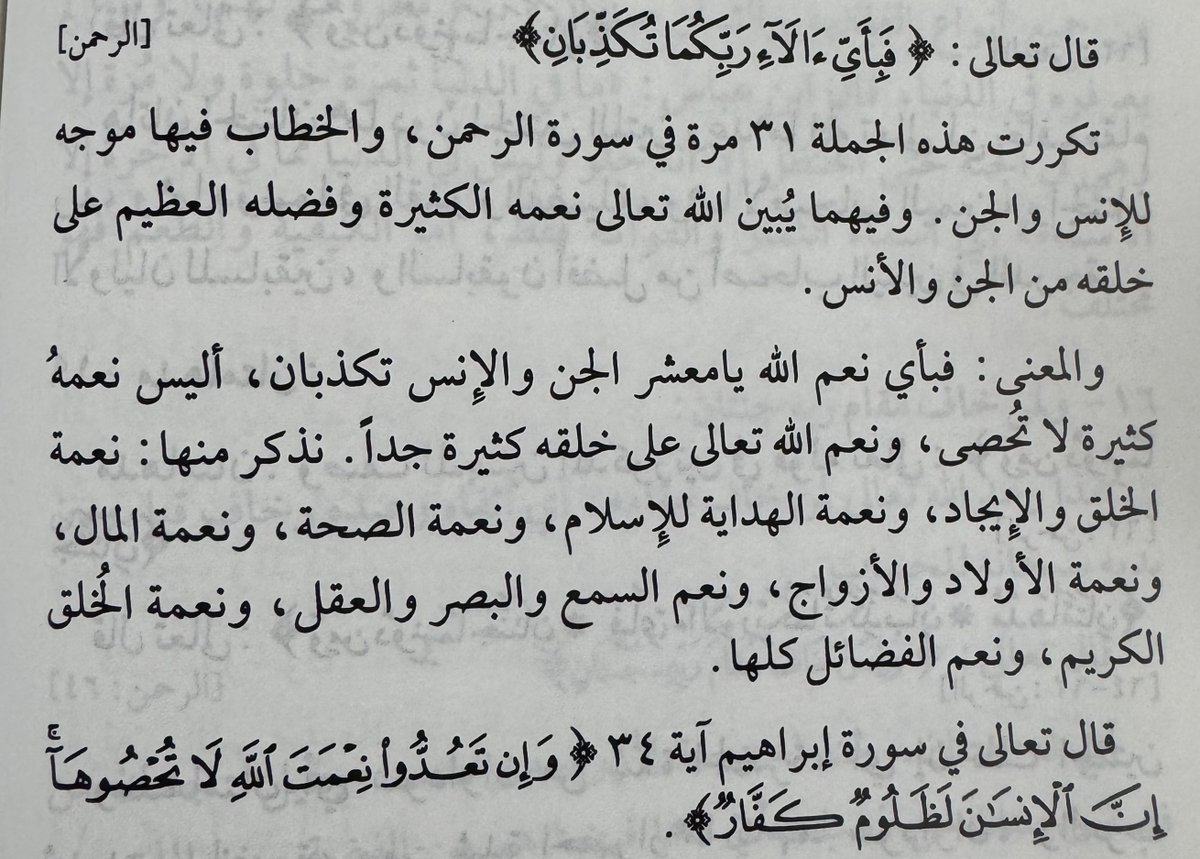 قال تعالى : ﴿ فَبِأَيِّ ءَالَآءِ رَبِّكُمَا تُكَذِّبَانِ ﴾ [الرحمن]
تكررت هذه الجملة ٣١ مرة في سورة الرحمن ، والخطاب فيها موجه
للإِنس والجن . وفيهما يُبين الله تعالى نعمه الكثيرة وفضله العظيم على
خلقه من الجن والأنس .
والمعنى : فبأي نعم الله يامعشر الجن والإِنس تكذبان ، أليس نعمهُ
كثيرة لا تُحصى ، ونعم الله تعالى على خلقه كثيرة جداً . نذكر منها : نعمة
الخلق والإِيجاد ، ونعمة الهداية للإِسلام ، ونعمة الصحة ، ونعمة المال ،
ونعمة الأولاد والأزواج ، ونعم السمع والبصر والعقل ، ونعمة الخُلق
الكريم ، ونعم الفضائل كلها .
قال تعالى في سورة إبراهيم آية ٣٤ ﴿ وَإِن تَعُدُّواْ نِعْمَتَ ٱللَّهِ لَا تُحْصُوهَآۗ
إِنَّ ٱلْإِنسَٰنَ لَظَلُومٌ كَفَّارٌ ﴾ .